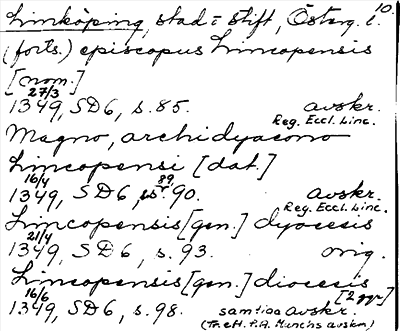 10
Linköping, stad o stift, Österg. l.
(forts.) episcopus Lincopensis
[nom.]
27/3
1349, SD6, s. 85. avskr.
Reg. Eccl. Linc.
Magno, archidyacono
Lincopensi [dat.]
16/4 89
1349, SD6, s. 90. avskr.
Reg. Eccl. Linc.
Lincopensis [gen.] dyocesis
21/4
1349, SD6, s. 93. orig.
Lincopensis [gen.] diocesis
[2 ggr]
16/6
1349, SD6, s. 98. samtida avskr.
(Tr. eft. P.A. Munchs avskr.)